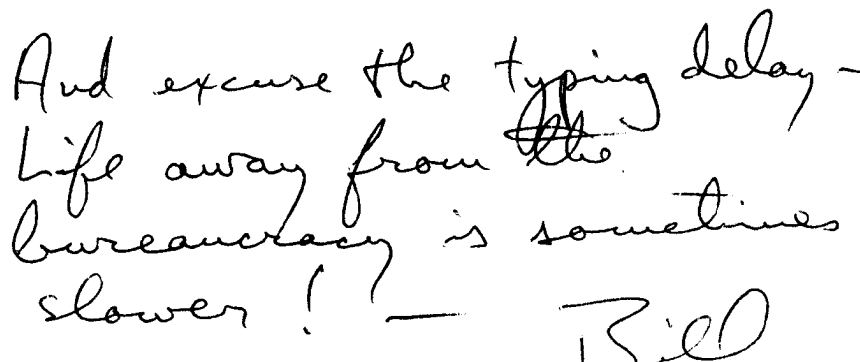 And excuse the typing delay -
Life away from the
bureaucracy is sometimes
slower! — Bill